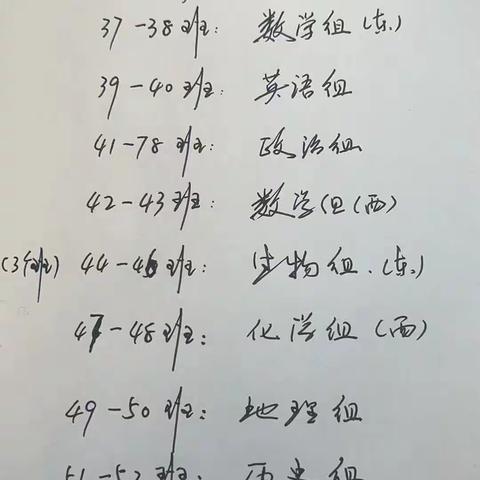 37-38班: 数学组(东)
39-40班: 英语组
41-78班: 政治组
42-43班: 数学组(西)
(3个班) 44-46班: 生物组.(东)
47-48班: 化学组(西)
49-50班: 地理组
51-52班: 历史组